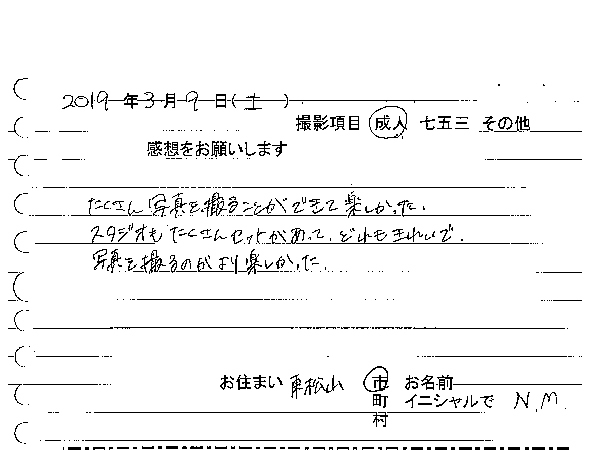 2019年3月9日(土)
撮影項目 成人 七五三 その他
感想をお願いします
たくさん写真を撮ることができて楽しかった。
スタジオもたくさんセットがあって、どれもきれいで、
写真を撮るのがより楽しかった。
お住まい 東松山 市 お名前
町 イニシャルで N.M
村